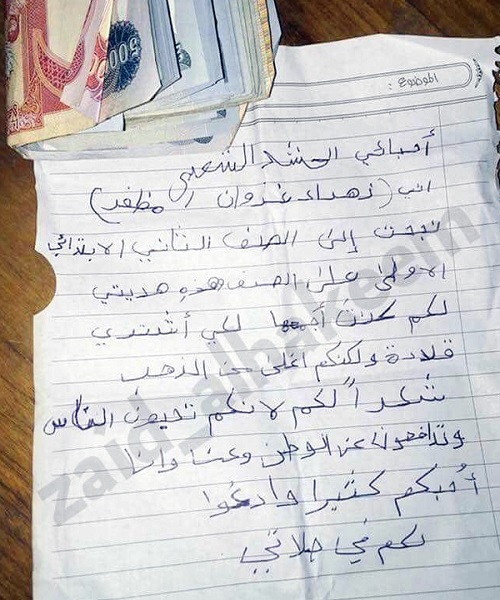 5000
الموضوع :
أحبائي الحشد الشعبي
اني (زهراء غزوان المظفر)
نجحت إلى الصف الثاني الابتدائي
الاولى على الصف هذه هديتي
لكم كنت أجمعها لكي أشتري
قلادة ولكنكم اغلى من الذهب
شكراً لكم لانكم تحبون الناس
وتدافعون عن الوطن وعنا وانا
أحبكم كثيرا وادعوا
لكم في صلاتي
zaid_alhakeem